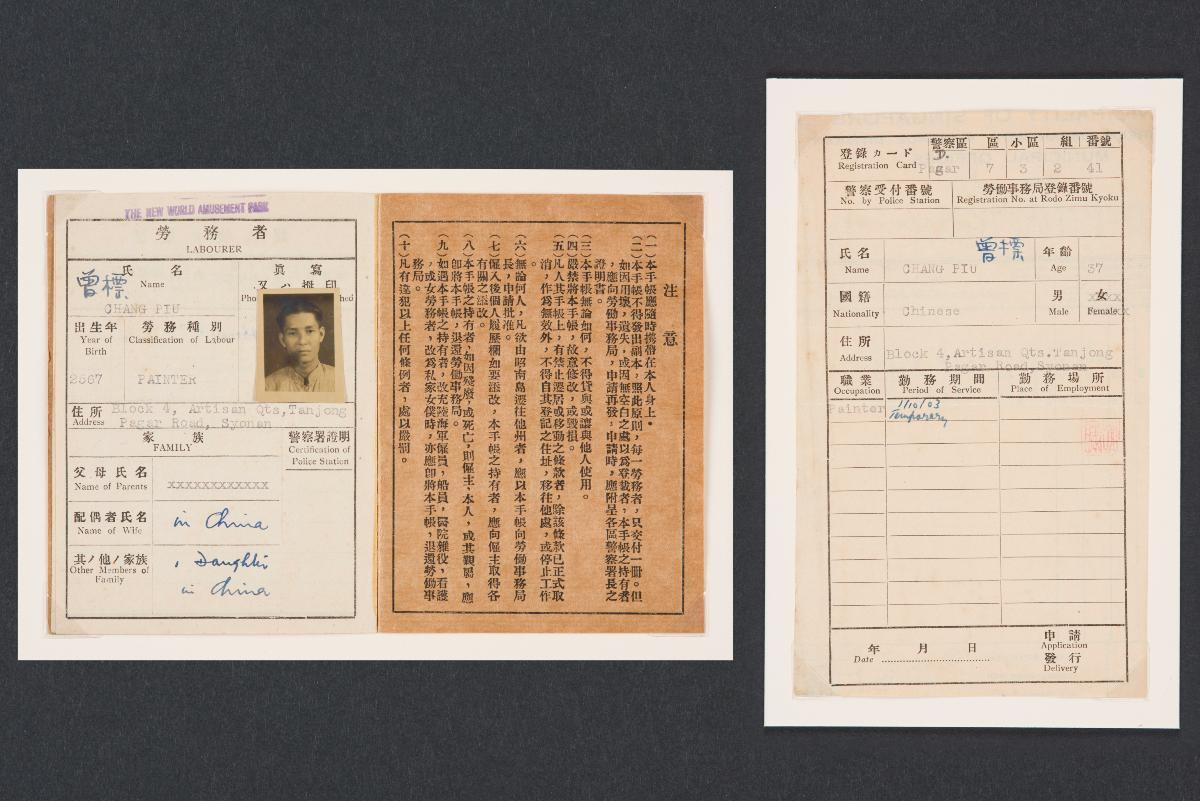 THE NEW WORLD AMUSEMENT PARK
勞務者
LABOURER
氏名
Name
曾標
CHANG PIU
眞寫
出生年
Year of
Birth
2567
勞務種別
Classification of Labour
PAINTER
住所
Address
Block 4, Artisan Qts,Tanjong
Pagar Road, Syonan
家族
FAMILY
警察署證明
Certification of
Police Station
父母氏名
Name of Parents
xxxxxxxxxxxx
配偶者氏名
Name of Wife
in China
其ノ他ノ家族
Other Members of
Family
1 Daughter
in China
注意
(一)本手帳應隨時携帶在本人身上。
(二)本手帳不得發出副本，照此原則，每一勞務者，只交付一冊。但
如因用壞，遺失，或因無空白之處以爲登載者，本手帳之持有者
，應向勞働事務局，申請再發，申請時，應附呈各區警察署長之
證明書。
(三)本手帳無論如何，不得貸與或讓與他人使用。
(四)嚴禁將本手帳，故意修改，或毀損。
(五)凡人其手帳上，有禁止遷居或移動之條款者，除該條款已正式取
消，作爲無效外，不得自其登記之住址，移往他處，或停止工作
。
(六)無論何人，凡欲由昭南島遷往他州者，應以本手帳向勞働事務局
長，申請批准。
(七)僱人後個人履歷欄如要添改，本手帳之持有者，應向僱主取得各
有關之添改。
(八)本手帳之持有者，如因殘廢，或死亡，則僱主，本人，或其親屬，應
即將本手帳，退還勞働事務局。
(九)如遇本手帳之持有者，改充陸海軍僱員，船員，醫院雜役，看護
，或女勞務者，改爲私家女僕時，亦應即將本手帳，退還勞働事
務局。
(十)凡有違犯以上任何條例者，處以嚴罰。
登錄カード
Registration Card
警察區 區 小區 組 番號
Pagar 7 3 2 41
警察受付番號
No. by Police Station
勞働事務局登錄番號
Registration No. at Rodo Zimu Kyoku
氏名
Name
曾標
CHANG PIU
年齡
Age
37
國籍
Nationality
Chinese
男
Male
女
Female
住所
Address
Block 4,Artisan Qts.Tanjong
Pagar Road,Syonan
職業
Occupation
勤務期間
Period of Service
勤務場所
Place of Employment
Painter
1/10/03
Temporary
年 月 日
Date
申請
Application
發行
Delivery